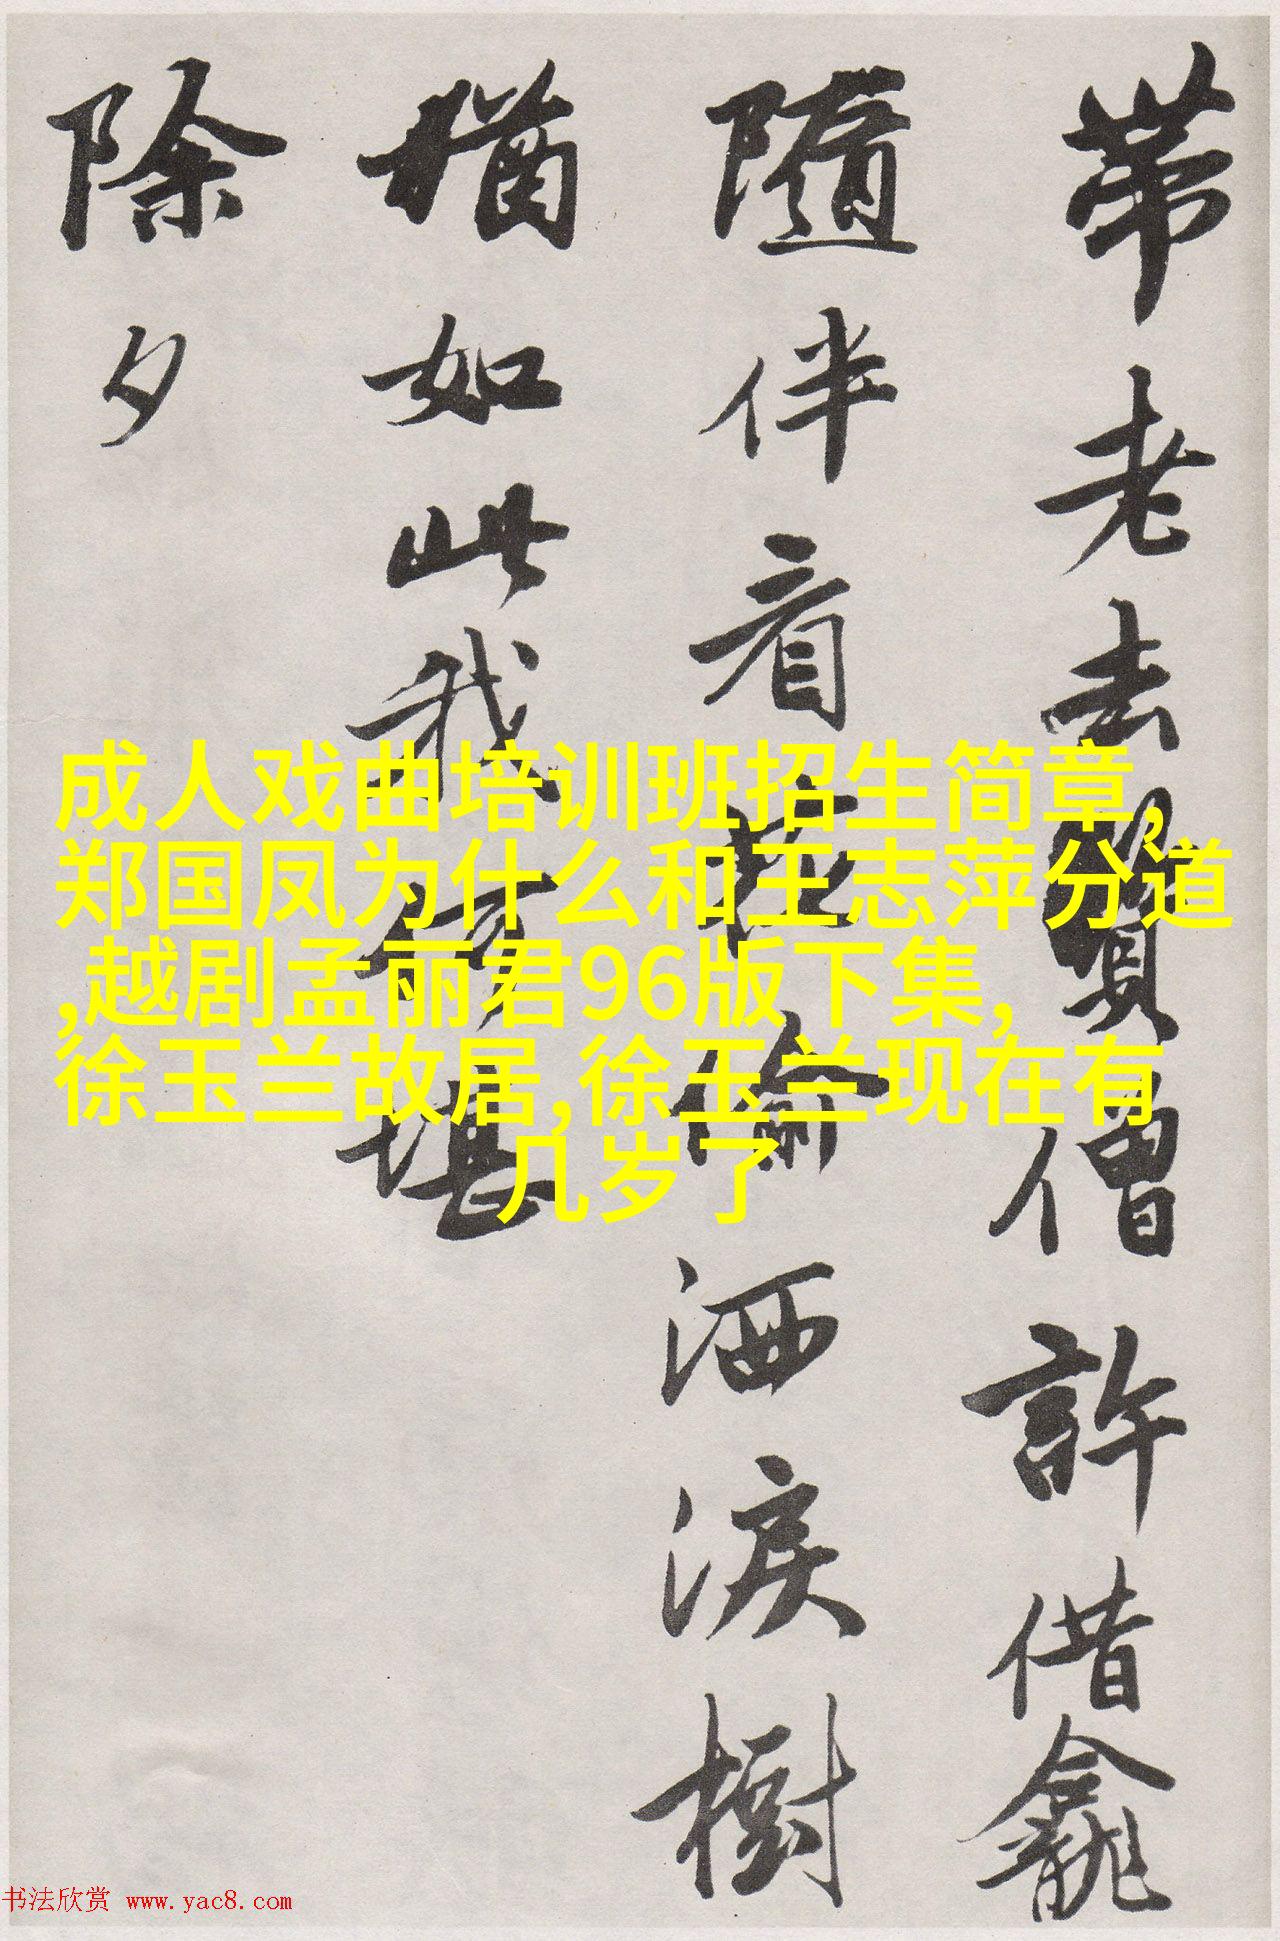 帶老去賢僧許借龕
隨伴看偷洒淚樹
猶如此我何堪
除夕
成人戏曲培训班招生简章,
郑国凤为什么和王志萍分道
,越剧孟丽君96版下集,
徐玉兰故居,徐玉兰现在有
几岁了
书法欣赏 www.yac8.com